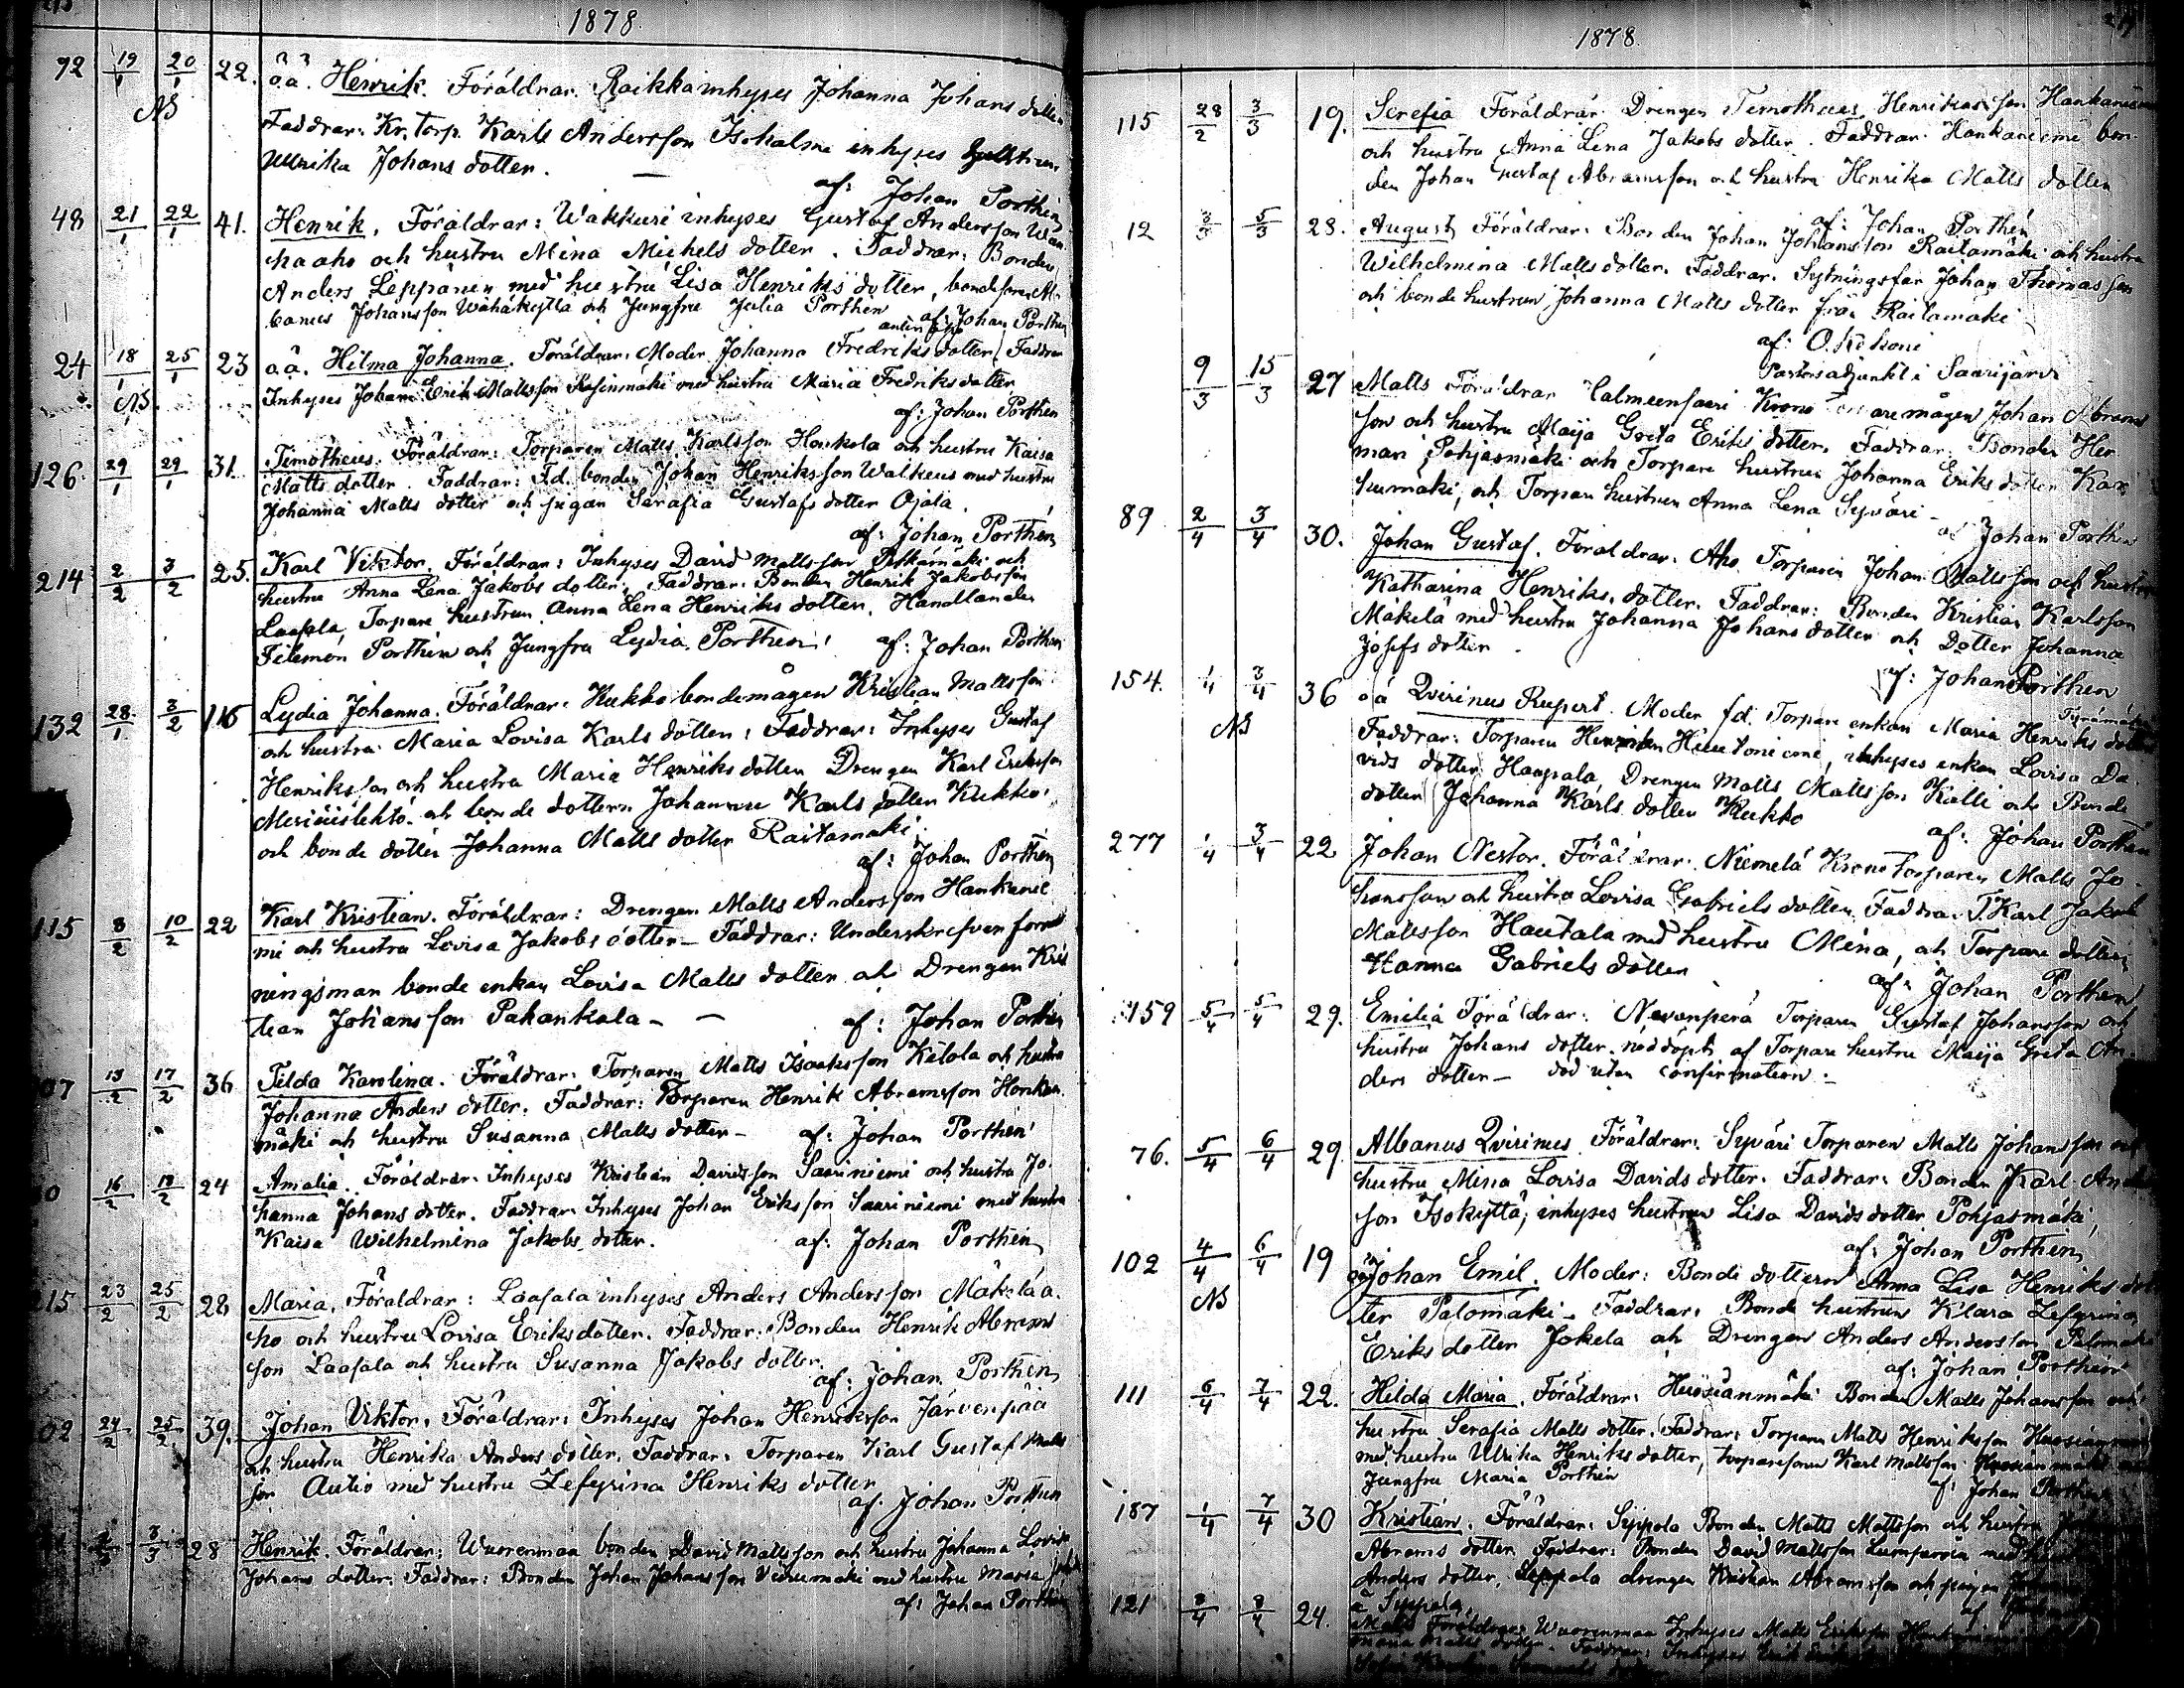 1878.
72 19/1 20/1 22. o.ä. Henrik. Föräldrar. Raikka inhyses Johanna Johans dotter
NB Faddrar: Kr. Torp. Karls Andersson Isohalme inhyses
Ulrika Johans dotter.
af: Johan Porthén
48 21/1 22/1 41. Henrik, Föräldrar: Wakkuri inhyses Gustaf Andersson Wän
kaaho och hustru Mina Michels dotter. Faddrar: Bonden
Anders Leppänen med hustru Lisa Henriks dotter, bondesonen Al
banus Johansson Wähäkytlä och Jungfru Julia Porthén
af: Johan Porthén
24 18/1 25/1 23 o.ä. Hilma Johanna. Föräldrar: Moder Johanna Fredriks dotter. Faddrar
NB. Inhyses Johan Erik Mattsson med hustru Maria Fredriks dotter
af: Johan Porthén
126. 29/1 29/1 31. Timotheus. Föräldrar: Torparen Matts Karlsson Honkola och hustru Kaisa
Matts dotter. Faddrar: Fd. bonden Johan Henriksson Walkeus med hustru
Johanna Matts dotter och pigan Serafia Gustafs dotter Ojala.
af: Johan Porthén
214 2/2 3/2 25. Karl Viktor. Föräldrar: Inhyses David Mattsson Pitkämäki och
hustru Anna Lena Jakobs dotter. Faddrar: Bonden Henrik Jakobsson
Laasala, Torpare hustrun Anna Lena Henriks dotter. Handlanden
Filemon Porthén och Jungfru Lydia Porthén. af: Johan Porthén
132 28/1 3/2 116 Lydia Johanna. Föräldrar: Kukko bondemågen Kristian Mattsson
och hustru Maria Lovisa Karls dotter: Faddrar: Inhyses Gustaf
Henriksson och hustru Maria Henriks dotter Drengen Karl Eriksson
och bonde dottern Johanna Karls dotter Kukko,
och bonde dotter Johanna Matts dotter Raitamäki.
af: Johan Porthén
115 8/2 10/2 22 Karl Kristian. Föräldrar: Drengen Matts Andersson Hankanie
mi och hustru Lovisa Jakobs dotter - Faddrar: Underskrifven
ningsman bonde enkan Lovisa Matts dotter och Drengen Kris
tian Johansson Pakankala - - af: Johan Porthén
107 13/2 17/2 36 Tilda Karolina. Föräldrar: Torparen Matts Isaksson Kilola och hustru
Johanna Anders dotter. Faddrar: Torparen Henrik Abramsson Honka
mäki och hustru Susanna Matts dotter - af: Johan Porthén
16/2 18/2 24 Amalia. Föräldrar: Inhyses Kristian Davidsson Saariniemi och hustru Jo
hanna Johans dotter. Faddrar: Inhyses Johan Eriksson Saariniemi med hustru
Kaisa Wilhelmina Jakobs dotter. af: Johan Porthén
215 23/2 25/2 28 Maria, Föräldrar: Laasala inhyses Anders Andersson Mäkelä a
ho och hustru Lovisa Eriks dotter. Faddrar: Bonden Henrik Abrams
son Laasala och hustru Susanna Jakobs dotter.
af: Johan Porthén
02 24/2 25/2 39. Johan Viktor. Föräldrar: Inhyses Johan Henriksson Järvenpää
och hustru Henrika Anders dotter. Faddrar: Torparen Karl Gustaf Matts
son Autio med hustru Zefyrina Henriks dotter
af: Johan Porthén
3/3 28 Henrik. Föräldrar: Wuorenmaa bonden David Mattsson och hustru Johanna Lovisa
Johans dotter: Faddrar: Bonden Johan Johansson Viinumäki med hustru Maria
af: Johan Porthén
1878.
115 28/2 3/3 19. Serefia Föräldrar: Drengen Timotheus Henriksson Hankaniemi
och hustru Anna Lena Jakobs dotter. Faddrar: Hankaniemi bon
den Johan Gustaf Abramsson och hustru Henrika Matts dotter
af: Johan Porthén
12 3/3 5/3 28. August, Föräldrar: Bonden Johan Johansson Raitamäki och hustru
Wilhelmina Matts dotter. Faddrar: Sytningsfar Johan Thomasson
och bonde hustrun Johanna Matts dotter från Raitamäki
af: O. Kökoni
Pastorsadjunkt i Saarijärvi
9/3 15/3 27 Matts Föräldrar Talmeensaari Kronotorparemågen Johan Abrams
son och hustru Maija Greta Eriks dotter. Faddrar: Bonden Her
man Pohjasmäki och Torpare hustrun Johanna Eriks dotter Kar
humäki, och Torpare hustrun Anna Lena Syväri -
af Johan Porthén
89 2/4 3/4 30. Johan Gustaf. Föräldrar: Aho Torparen Johan Mattsson och hustru
Katharina Henriks dotter. Faddrar: Bonden Kristian Karlsson
Mäkelä med hustru Johanna Johans dotter och Dotter Johanna
Josefs dotter.
af: Johan Porthén
154. 1/4 3/4 36 o.ä Qvirinus Rupert. Moder fd. Torpare enkan Maria Henriks dotter
NB Faddrar: Torparen Henrik Hiutoniemi, inhyses enkan Lovisa Da
vids dotter Haapala, Drengen Matts Mattsson Kalli och Bonde
dotter Johanna Karls dotter Kukko
af: Johan Porthén
277 1/4 3/4 22 Johan Nestor. Föräldrar: Niemelä Kronotorparen Matts Jo
hansson och hustru Lovisa Gabriels dotter. Faddrar: T. Karl Jakob
Mattsson Hautala med hustru Mina, och Torpare dottern
Hanna Gabriels dotter
af: Johan Porthén
159 5/4 5/4 29. Emilia Föräldrar: Nevanperä Torparen Gustaf Johansson och
hustru Johans dotter. nöddöpt af Torpare hustru Maija Greta An
ders dotter - död utan confirmation. -
76. 5/4 6/4 29. Albanus Qvirinus. Föräldrar: Syväri Torparen Matts Johansson och
hustru Mina Lovisa Davids dotter. Faddrar: Bonden Karl Anders
son Isokyttä, inhyses hustrun Lisa Davids dotter Pohjasmäki,
af: Johan Porthén
102 4/4 6/4 19 oä Johan Emil. Moder: Bonde dottern Anna Lisa Henriks dot
NB ter Palomäki - Faddrar: Bonde hustrun Klara Zefyrina
Eriks dotter Jokela och Drengen Anders Andersson Palomäki
af: Johan Porthén
111 6/4 7/4 22. Hilda Maria. Föräldrar: Huosianmäki Bonden Matts Johansson och
hustru Serafia Matts dotter. Faddrar: Torparen Matts Henriksson Huosianmäki
med hustru Ulrika Henriks dotter, torparesonen Karl Mattsson Huosianmäki
Jungfru Maria Porthén
af: Johan Porthén
187 1/4 7/4 30 Kristian. Föräldrar: Syppola Bonden Matts Mattsson och hustru
Abrams dotter. Faddrar: Bonden David Mattsson med
Anders dotter, drengen Kristian Abramsson och pigan
Syppola,
121 8/4 8/4 24. Matts Föräldrar: Wuorenmaa Inhyses Matts Eriksson
Maria Matts dotter. Faddrar: Inhyses Erik